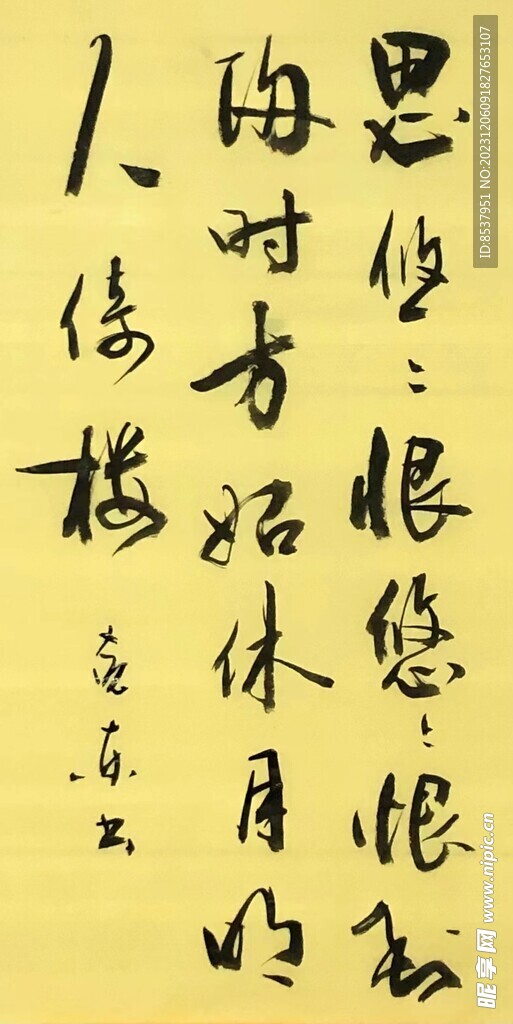 思悠〻恨悠〻恨到
归时方始休月明
人倚楼
东书
ID:8537951 NO:20231206091827653107
昵享网 www.nipic.cn